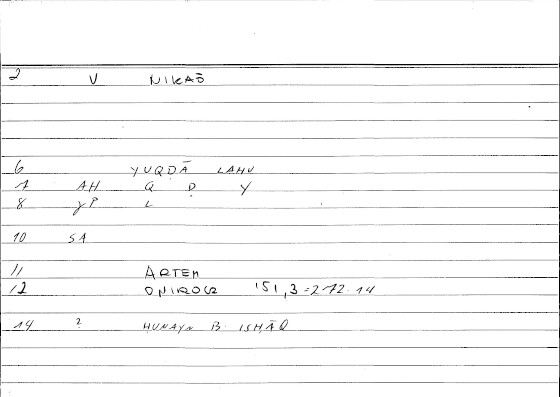 2 V NIKĀḤ
6 YUQḌĀ LAHU
7 AH Q Ḍ Y
8 γP L
10 SA
11 ARTEM
12 ONIROCR 151,3=272.14
14 ? ḤUNAYN B. ISḤĀQ